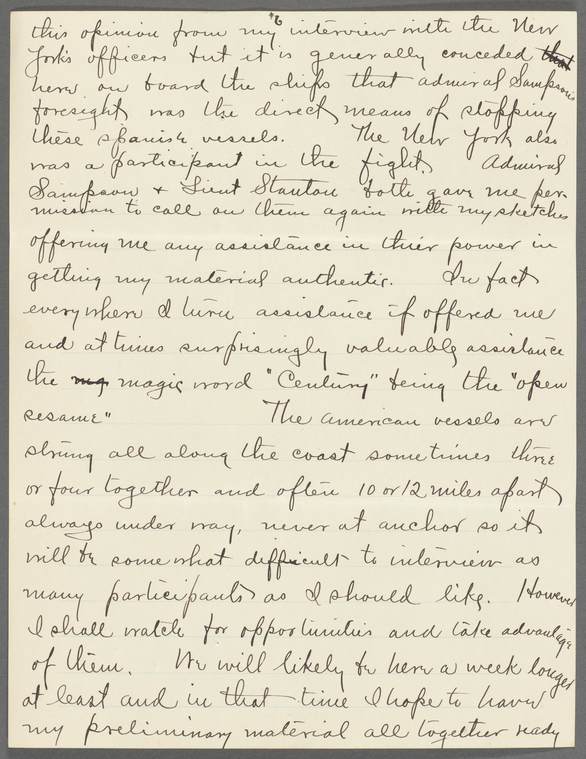 6
this opinion from my interview with the New
York's officers but it is generally conceded that
here on board the ships that admiral Sampson's
foresight was the direct means of stopping
these spanish vessels. The New York also
was a participant in the fight. Admiral
Sampson & Lieut Stanton both gave me per-
mission to call on them again with my sketches
offering me any assistance in thier power in
getting my material authentic. In fact
everywhere I turn assistance if offered me
and at times surprisingly valuable assistance
the my magic word "Century" being the "open
sesame" The american vessels are
strung all along the coast sometimes three
or four together and often 10 or 12 miles apart
always under way, never at anchor so it
will be somewhat difficult to interview as
many participants as I should like. However
I shall watch for opportunities and take advantage
of them. We will likely be here a week longer
at least and in that time I hope to have
my preliminary material all together ready